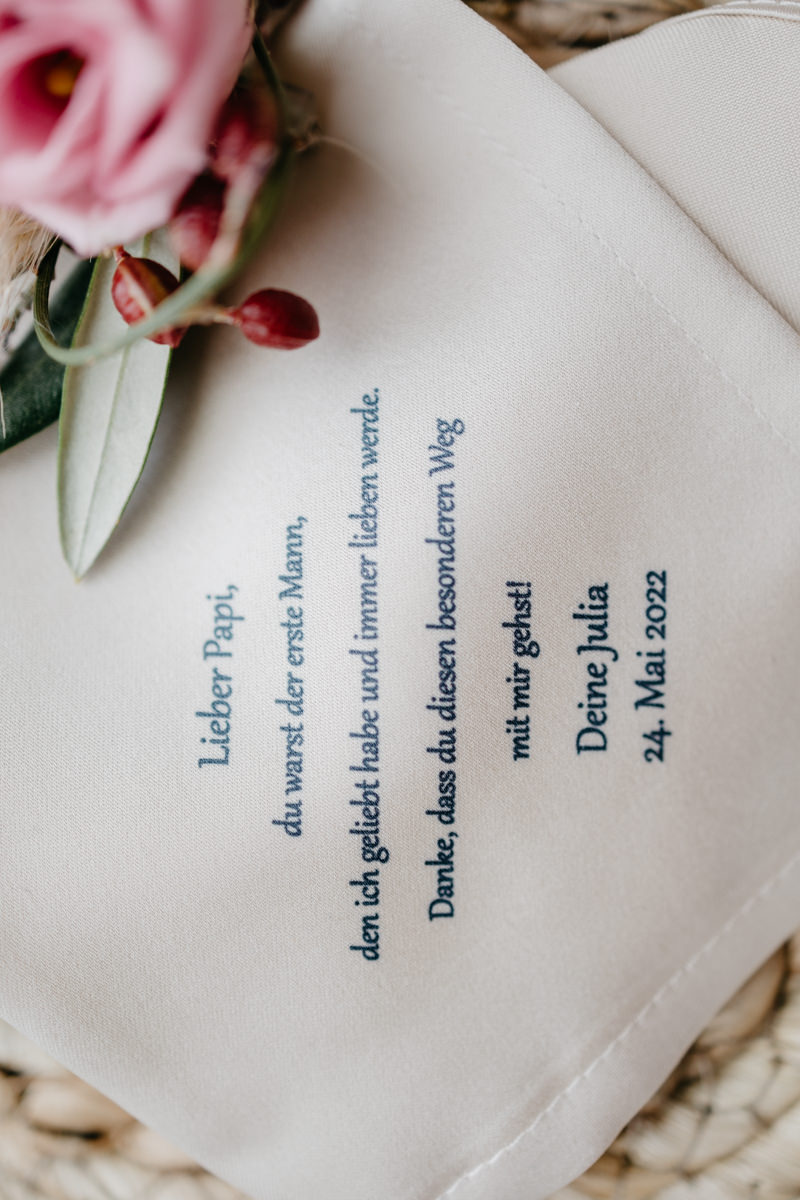 Lieber Papi,
du warst der erste Mann,
den ich geliebt habe und immer lieben werde.
Danke, dass du diesen besonderen Weg
mit mir gehst!
Deine Julia
24. Mai 2022